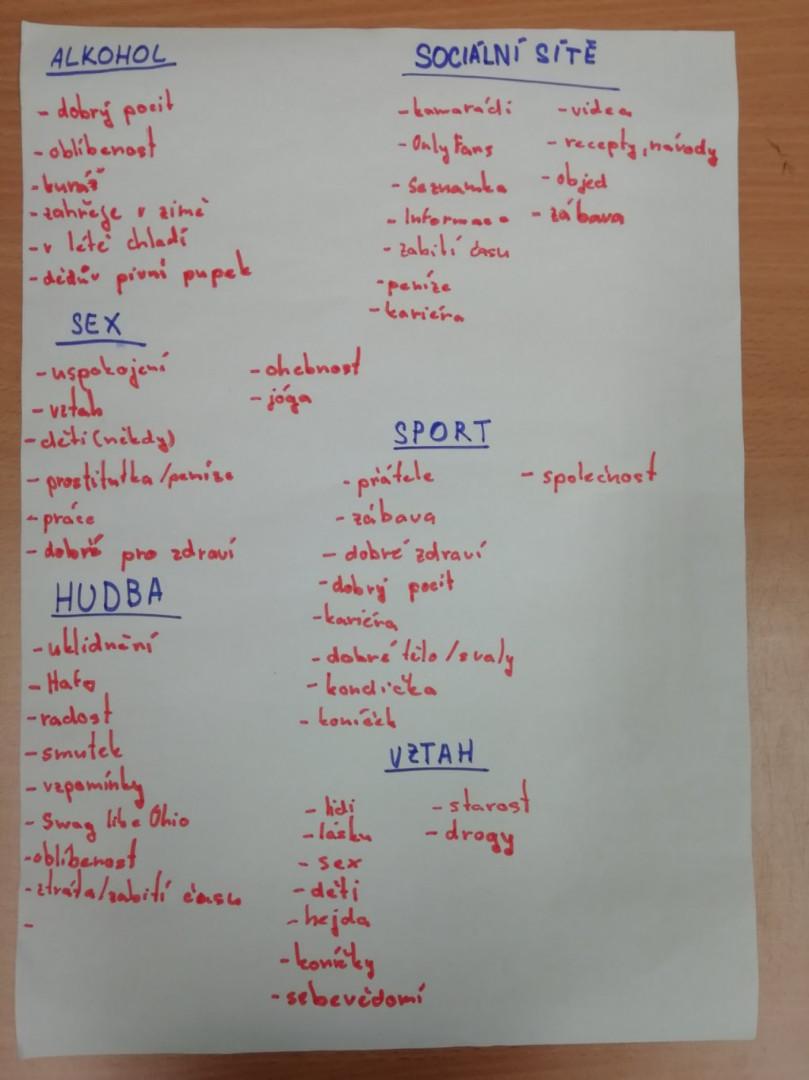 ALKOHOL
- dobrý pocit
- oblíbenost
- kuráž
- zahřeje v zimě
- v létě chladí
- dědův pivní pupek
SEX
- uspokojení
- vztah
- děti (někdy)
- prostitutka/peníze
- práce
- dobré pro zdraví
- ohebnost
- jóga
HUDBA
- uklidnění
- radost
- smutek
- vzpomínky
- Swag like Ohio
- oblíbenost
- ztráta/zabití času
-
SOCIÁLNÍ SÍTĚ
- kamarádi
- OnlyFans
- Seznamka
- Informace
- zabití času
- peníze
- kariéra
- videa
- recepty, návody
- objed
- zábava
SPORT
- přátele
- zábava
- dobré zdraví
- dobrý pocit
- kariéra
- dobré tělo/svaly
- kondička
- koníček
- společnost
VZTAH
- lidi
- lásku
- sex
- děti
- hejda
- koníčky
- sebevědomí
- starost
- drogy